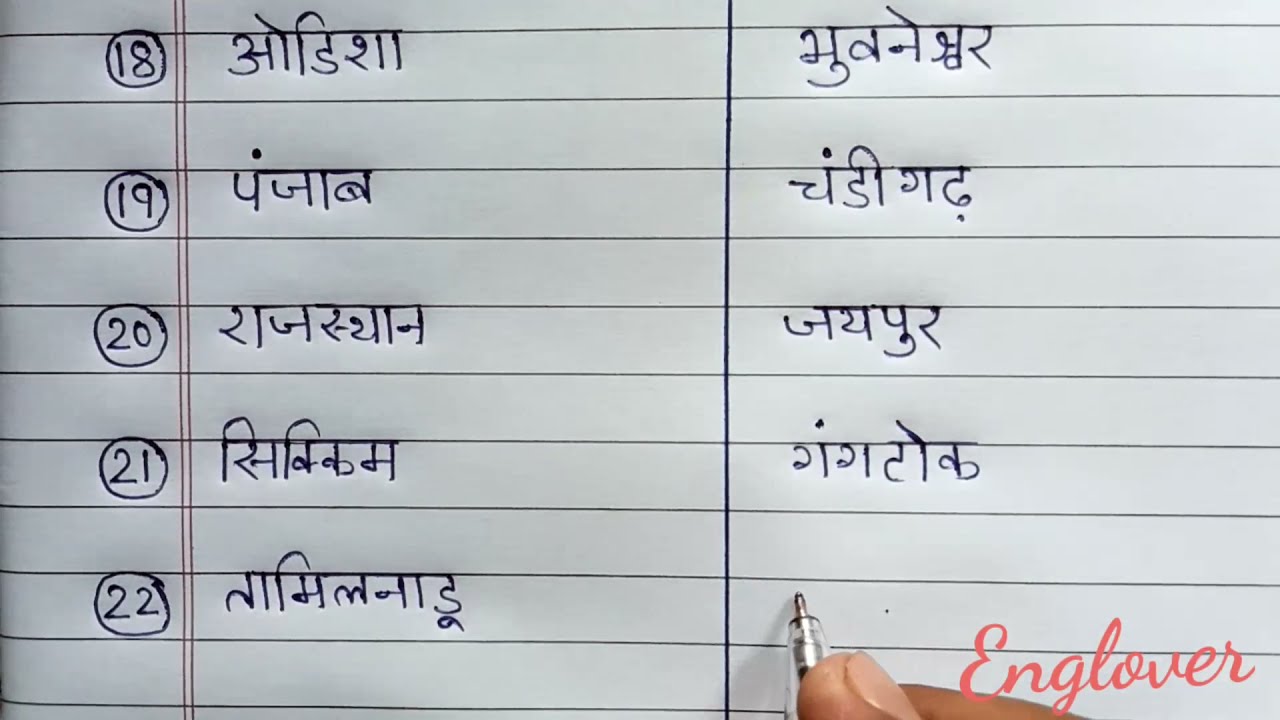 18 ओडिशा भुवनेश्वर
19 पंजाब चंडीगढ़
20 राजस्थान जयपुर
21 सिक्किम गंगटोक
22 तामिलनाडू
Englover